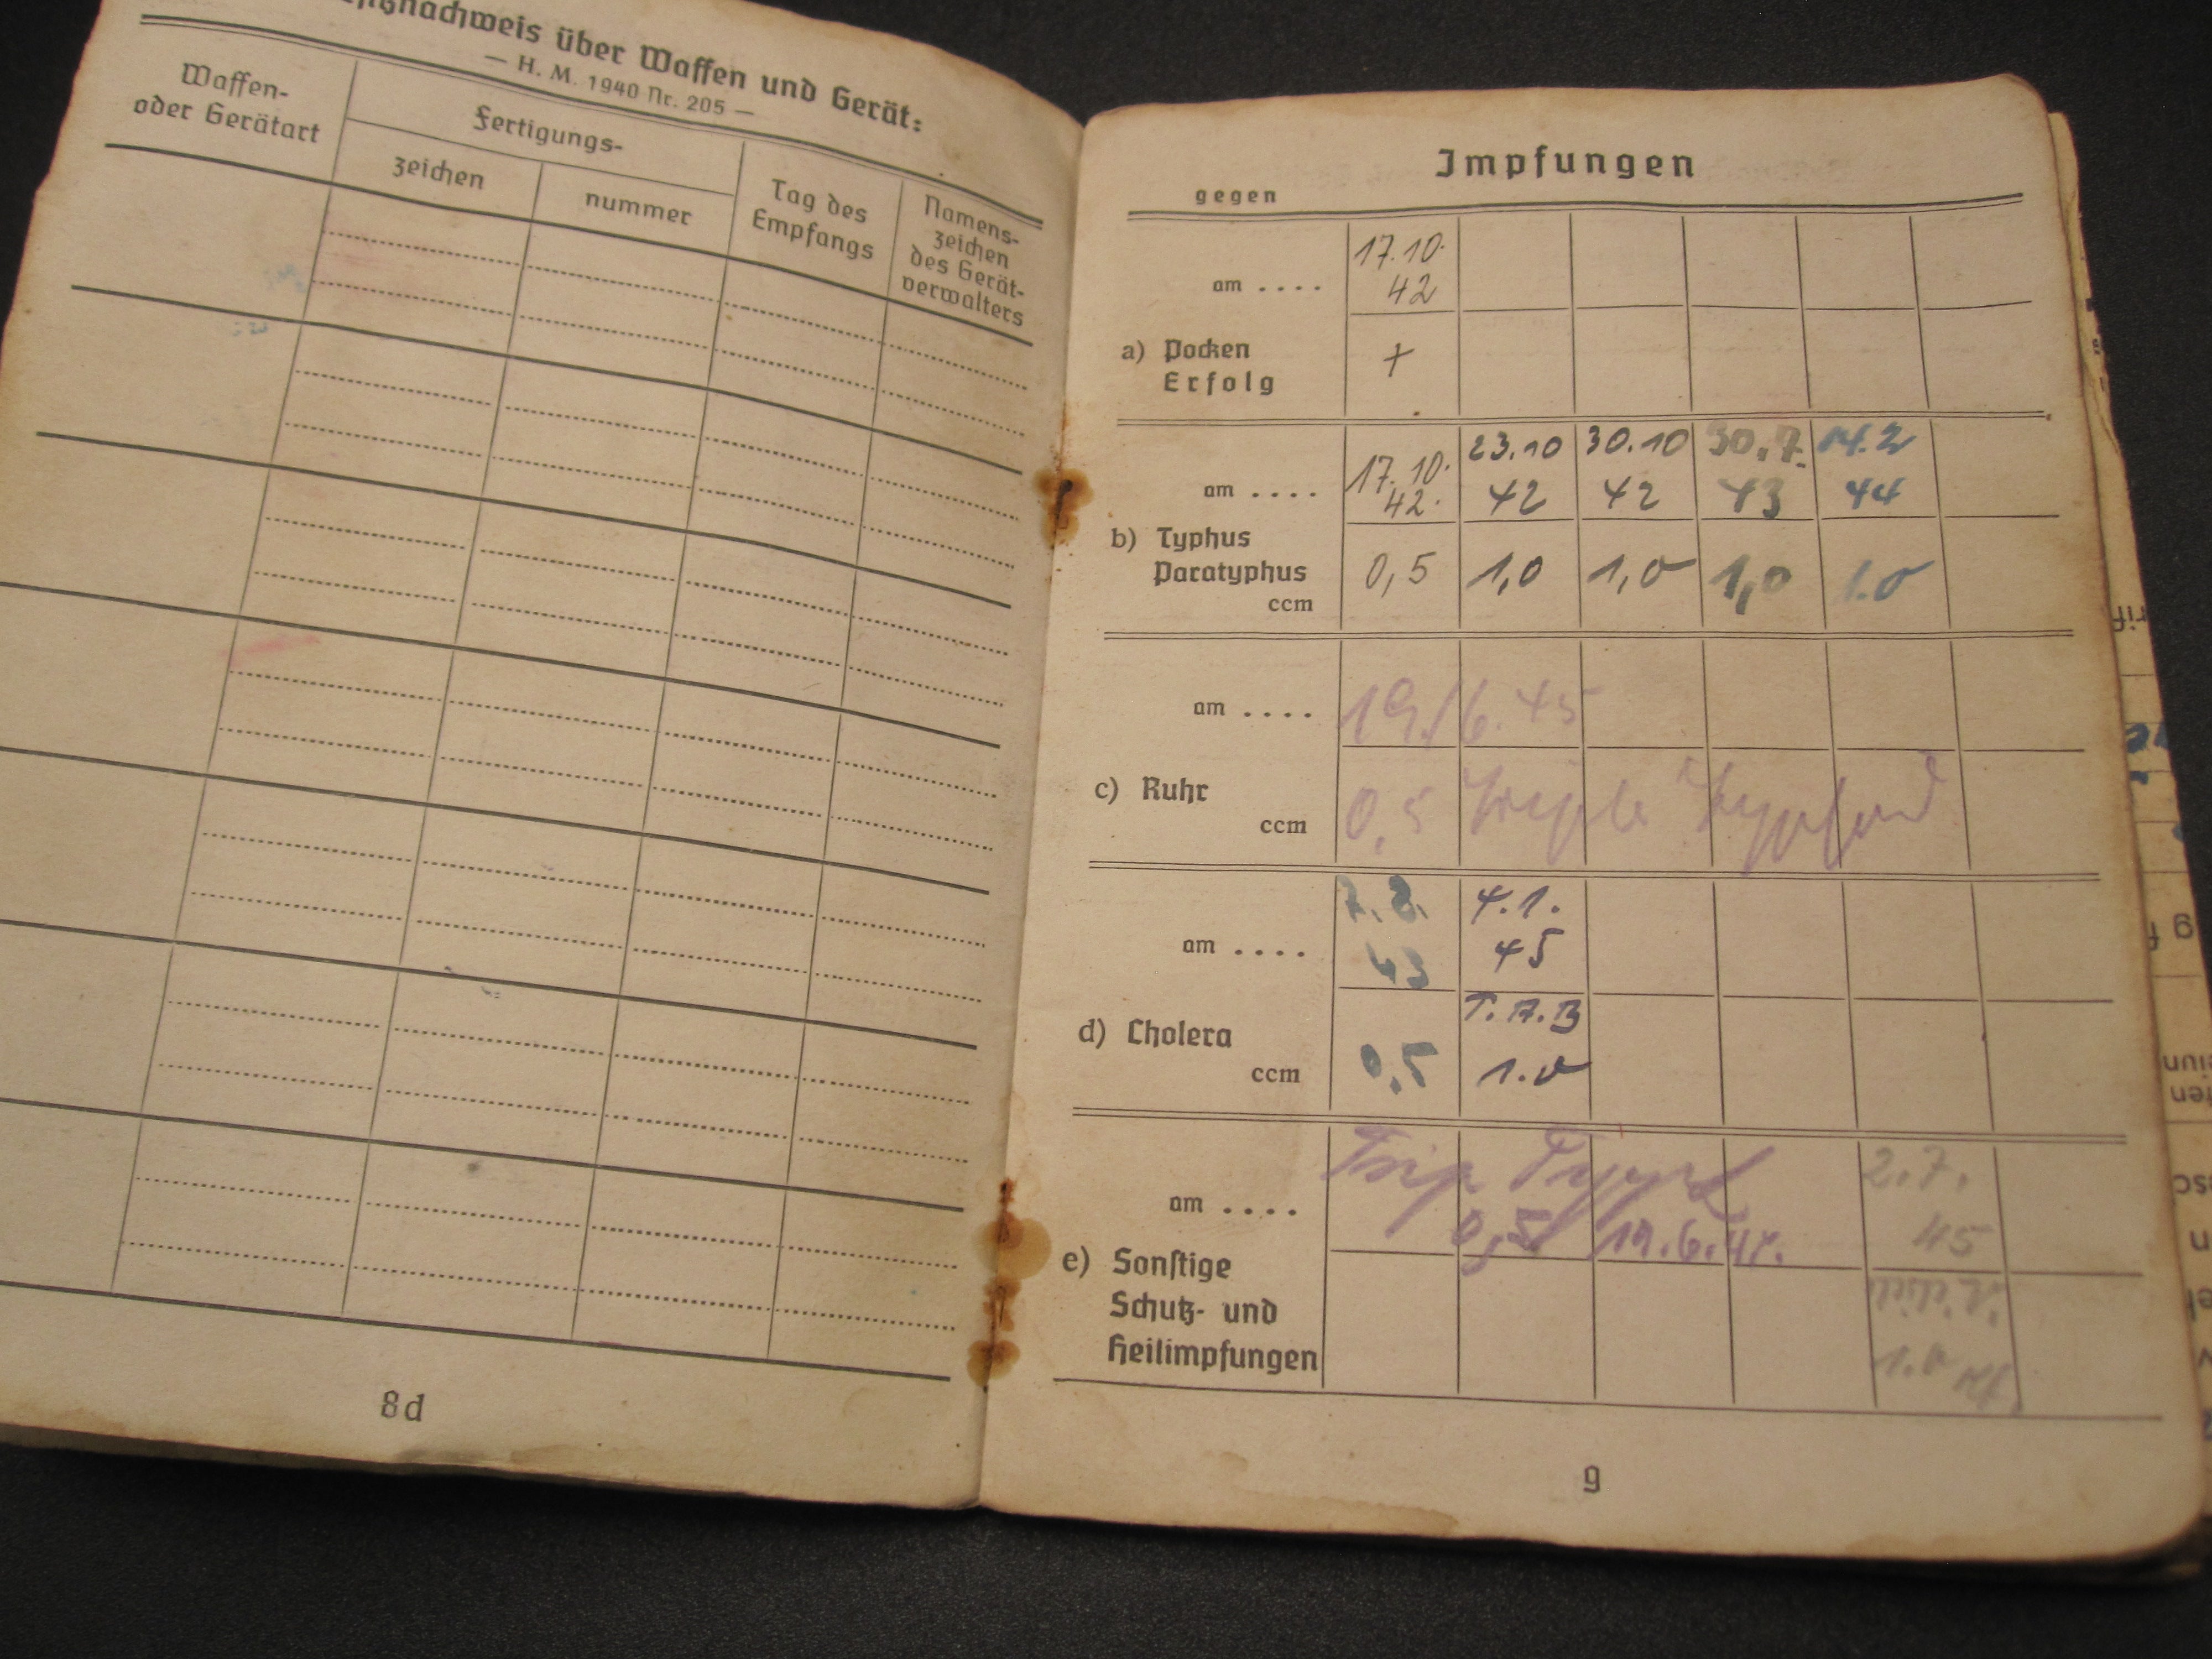 über Waffen und Gerät:
— H. M. 1940 Nr. 205 —
Waffen-
oder Gerätart
Fertigungs-
zeichen
nummer
Tag des
Empfangs
Namens-
zeichen
des Gerät-
verwalters
8d
Impfungen
gegen
am ....
17.10.
42
a) Pocken
Erfolg
+
am ....
17.10. 23.10 30.10 30.7. 14.2
42. 42 42 43 44
b) Typhus
Paratyphus
ccm
0,5 1,0 1,0 1,0 1.0
am ....
19./6. 45
c) Ruhr
ccm
0,5
am ....
7.8. 4.1.
43 45
d) Cholera
T.A.B
ccm
0,5 1.0
2.7.
am ....
0,5 19.6.45.
45
e) Sonstige
Schutz- und
Heilimpfungen
1.0
9